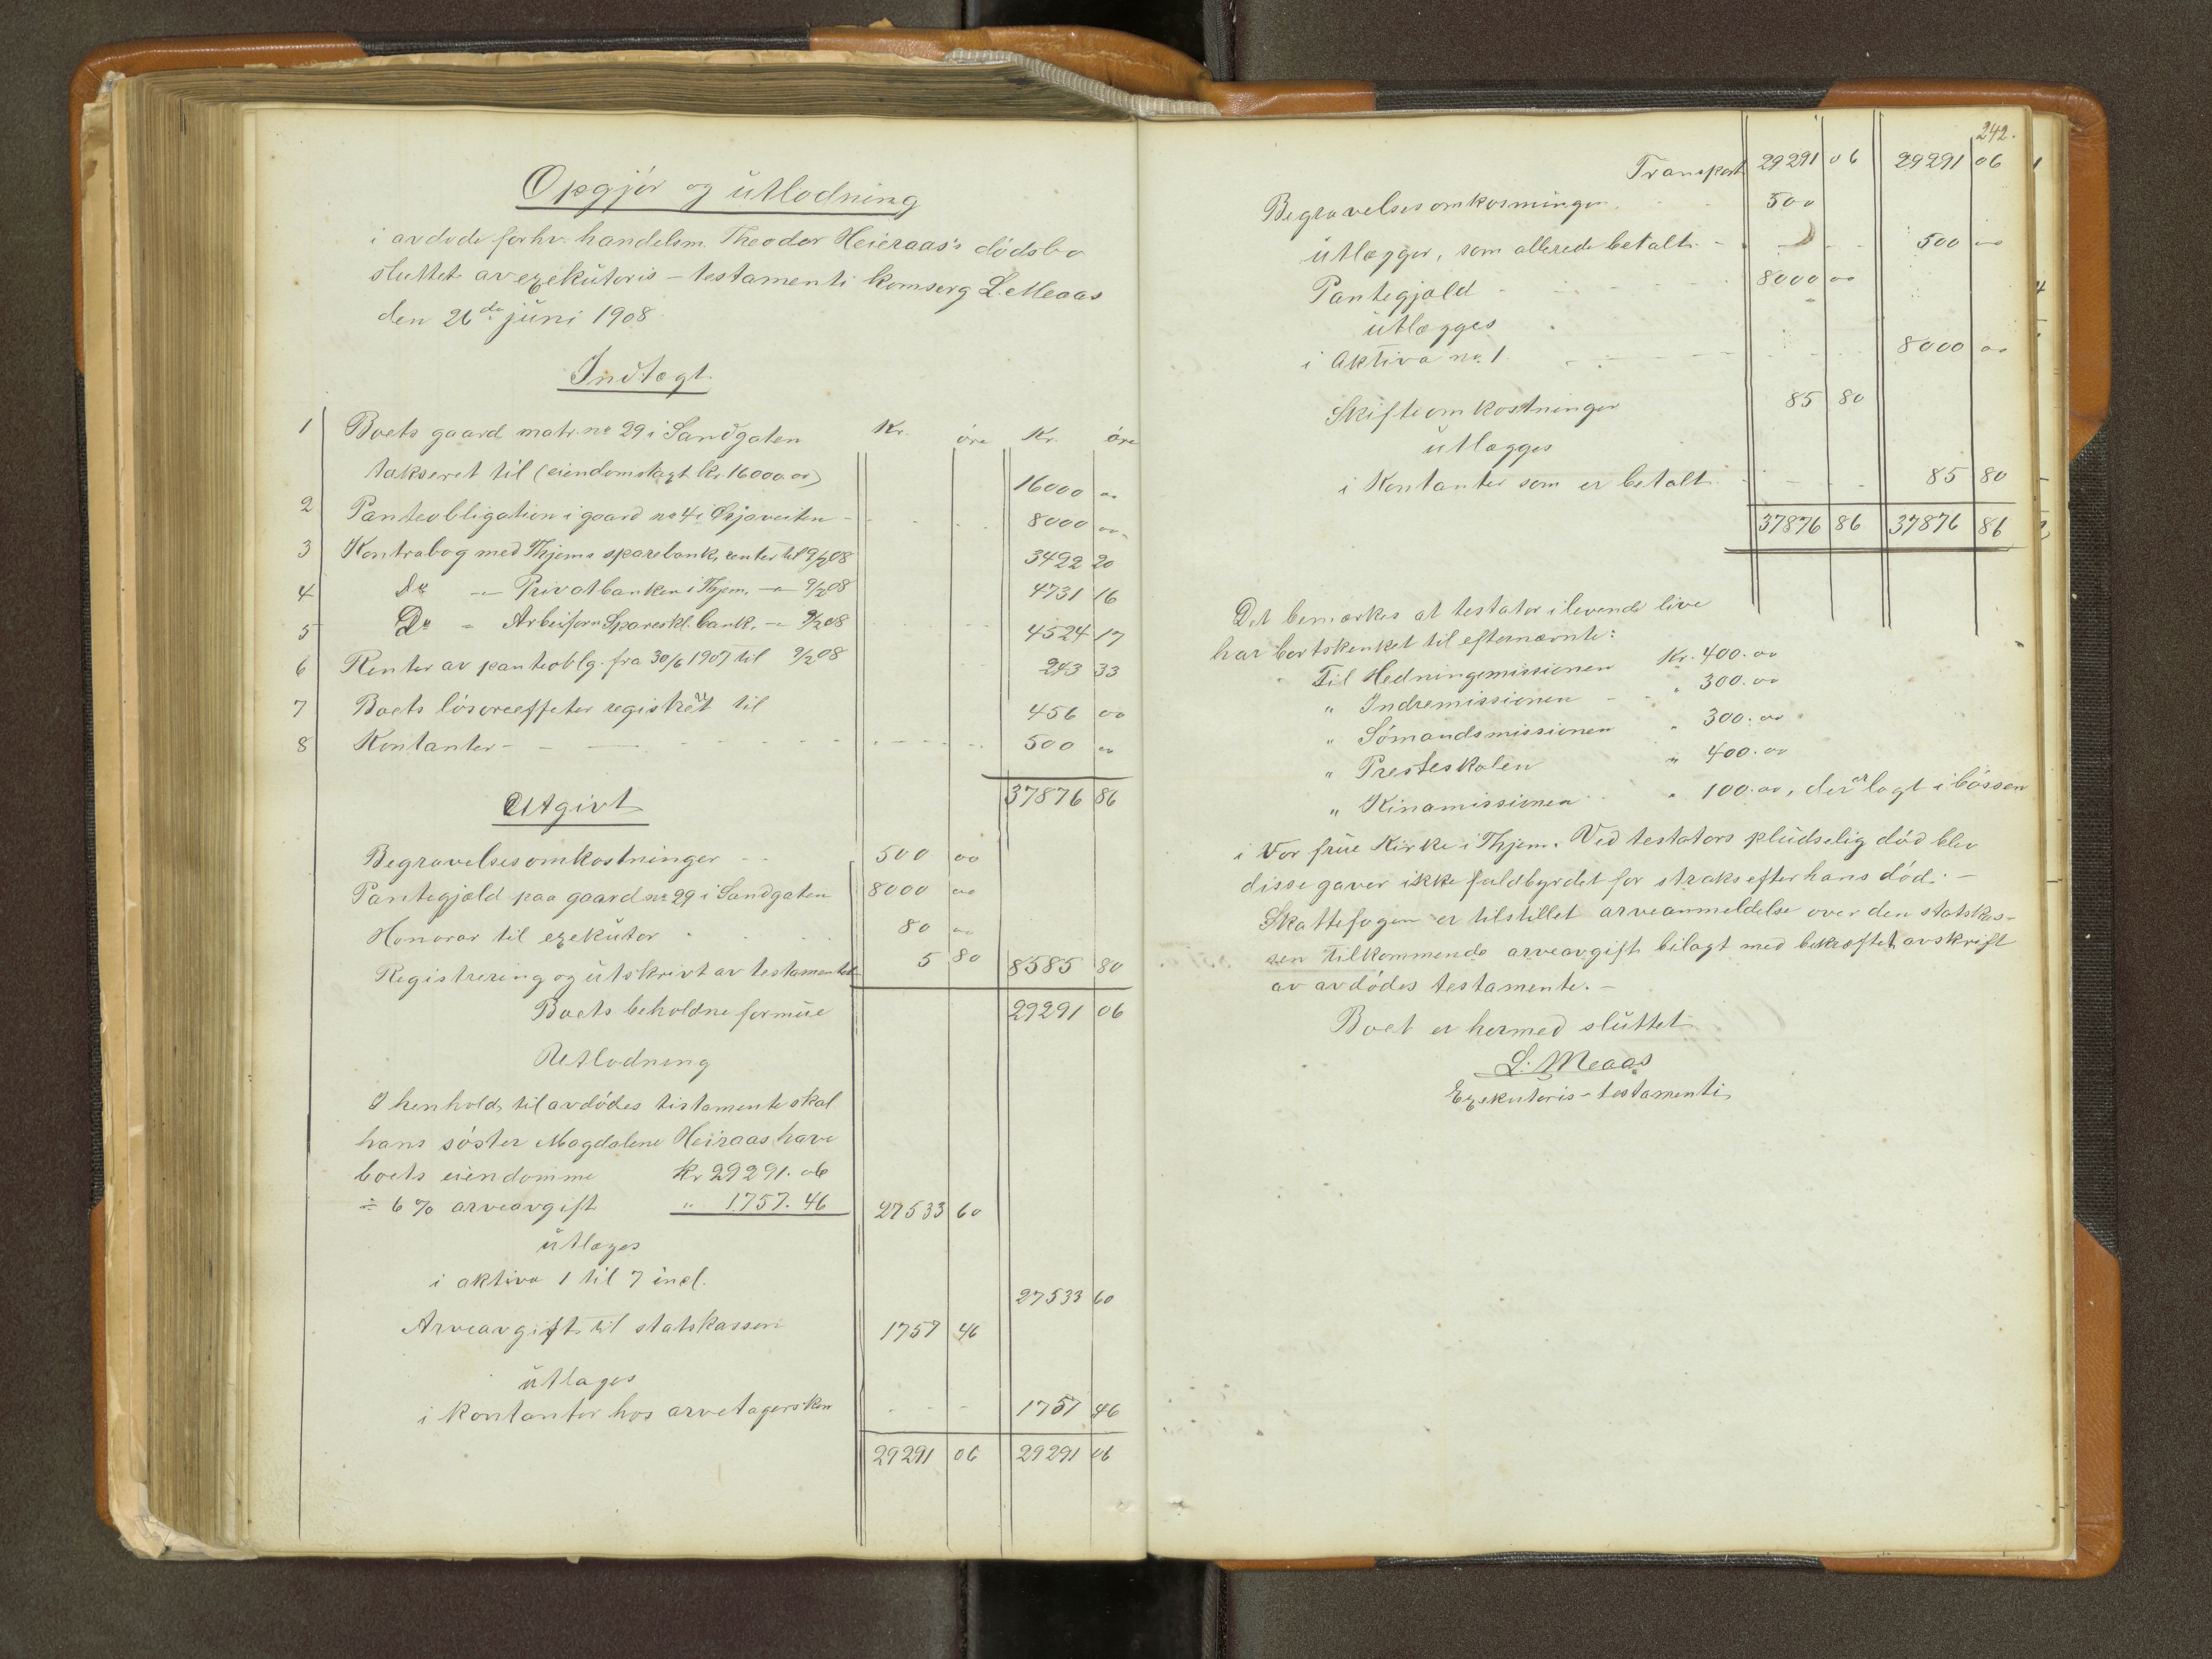 Opgjör og utlodning
i avdöde forhv. handelsm. Theodor Heieraas's dödsbo
sluttet av exekutoris-testamenti komserg L. Meaas
den 26de juni 1908.
Indtægt.
Kr. öre Kr. öre
1 Boets gaard matr. no 29 i Sandgaten
takseret til (eiendomstagt kr. 16000.00) 16000 00
2 Panteobligation i gaard no 4 i Ørjaveiten - 8000 00
3 Kontrabog med Thjems sparebank, renter til 9/2 08 3492 20
4 Do - Privatbanken i Thjem. - 9/2 08 4731 16
5 Do - Arbeiforn Spareskl. bank. - 9/2 08 4524 17
6 Renter av panteoblg. fra 30/6 1907 til 9/2 08 243 33
7 Boets lösöreeffeter registret til 456 00
8 Kontanter - 500 00
37876 86
Utgivt
Begravelsesomkostninger 500 00
Pantegjæld paa gaard no 29 i Sandgaten 8000 00
Honorar til exekutor 80 00
Registrering og utskrivt av testamentet 5 80 8585 80
Boets beholdne formue 29291 06
Utlodning
I henhold til avdödes tistamente skal
hans söster Magdalene Heiraas have
boets eiendomme Kr 29291. 06
÷ 6 % arveavgift " 1757. 46 27533 60
utlæges
i aktiva 1 til 7 incl. 27533 60
Arveavgift til statskassen 1757 46
utlæges
i kontanter hos arvetagersken 1757 46
29291 06 29291 06
242.
Transport 29291 06 29291 06
Begravelsesomkosninger 500
utlægger, som allerede betalt - 500 00
Pantegjæld 8000 00
utlægges
i Aktiva no. 1. 8000 00
Skifteomkostninger 85 80
utlægges
i Kontanter som er betalt 85 80
37876 86 37876 86
Det bemærkes at testator i levende live
har bortskenket til efternævnte:
Til Hedningemissionen Kr. 400.00
" Indremissionen " 300.00
" Sömandsmissionen " 300.00
" Presteskolen " 400.00
" Kinamissionen " 100.00, der er lagt i bössen
i Vor frue Kirke i Thjem. Ved testators pludselig död blev
disse gaver ikke fuldbyrdet for straks efter hans död. -
Skattefogen er tilstillet arveanmeldelse over den statskas-
sen tilkommende arveavgift bilagt med bekræftet avskrift
av avdödes testamente. -
Boet er hermed sluttet
L. Meaas
Exekutoris-testamenti